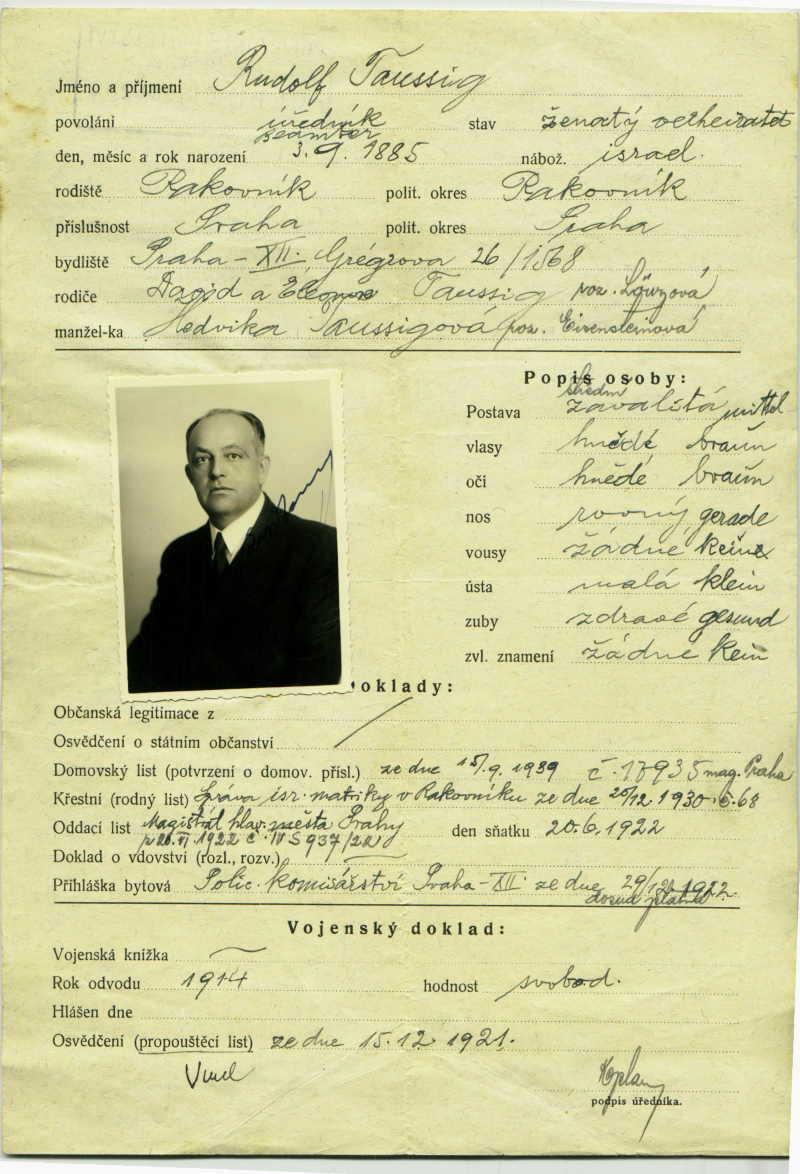 Jméno a příjmení Rudolf Taussig
povoláni úředník stav ženatý verheiratet
beamter
den, měsíc a rok narození 3. 9. 1885 nábož. israel.
rodiště Rakovník polit. okres Rakovník
příslušnost Praha polit. okres Praha
bydliště Praha-XII. Grégrova 26/1568
rodiče David a Taussig roz.
manžel-ka Hedvika Taussigová roz. Eisensteinová
Popis osoby:
středni
Postava zavalitá mittel
vlasy hnědé braun
očí hnědé braun
nos rovný gerade
vousy žádné keine
ústa malá klein
zuby zdravé gesund
zvl. znamení žádné kein
oklady:
Občanská legitimace z
Osvědčení o státním občanství
Domovský list (potvrzení o domov. přísl.) ze dne 15/9. 1939 č. 17935 mag. Praha
Křestní (rodný list) Správa isr. matriky v Rakovníku ze dne 1930 č. 68
Oddací list Magistrát hlav. města Prahy den sňatku 20. 6. 1922
VI 1922 č. IV S 937/22
Doklad o vdovství (rozl., rozv.)
Přihláška bytová Polic. komisařství Praha-XII ze dne 29/12 1922.
dosud platná
Vojenský doklad:
Vojenská knížka
Rok odvodu 1914 hodnost svobod.
Hlášen dne
Osvědčení (propouštěcí list) ze dne 15. 12. 1921.
podpis úředníka.